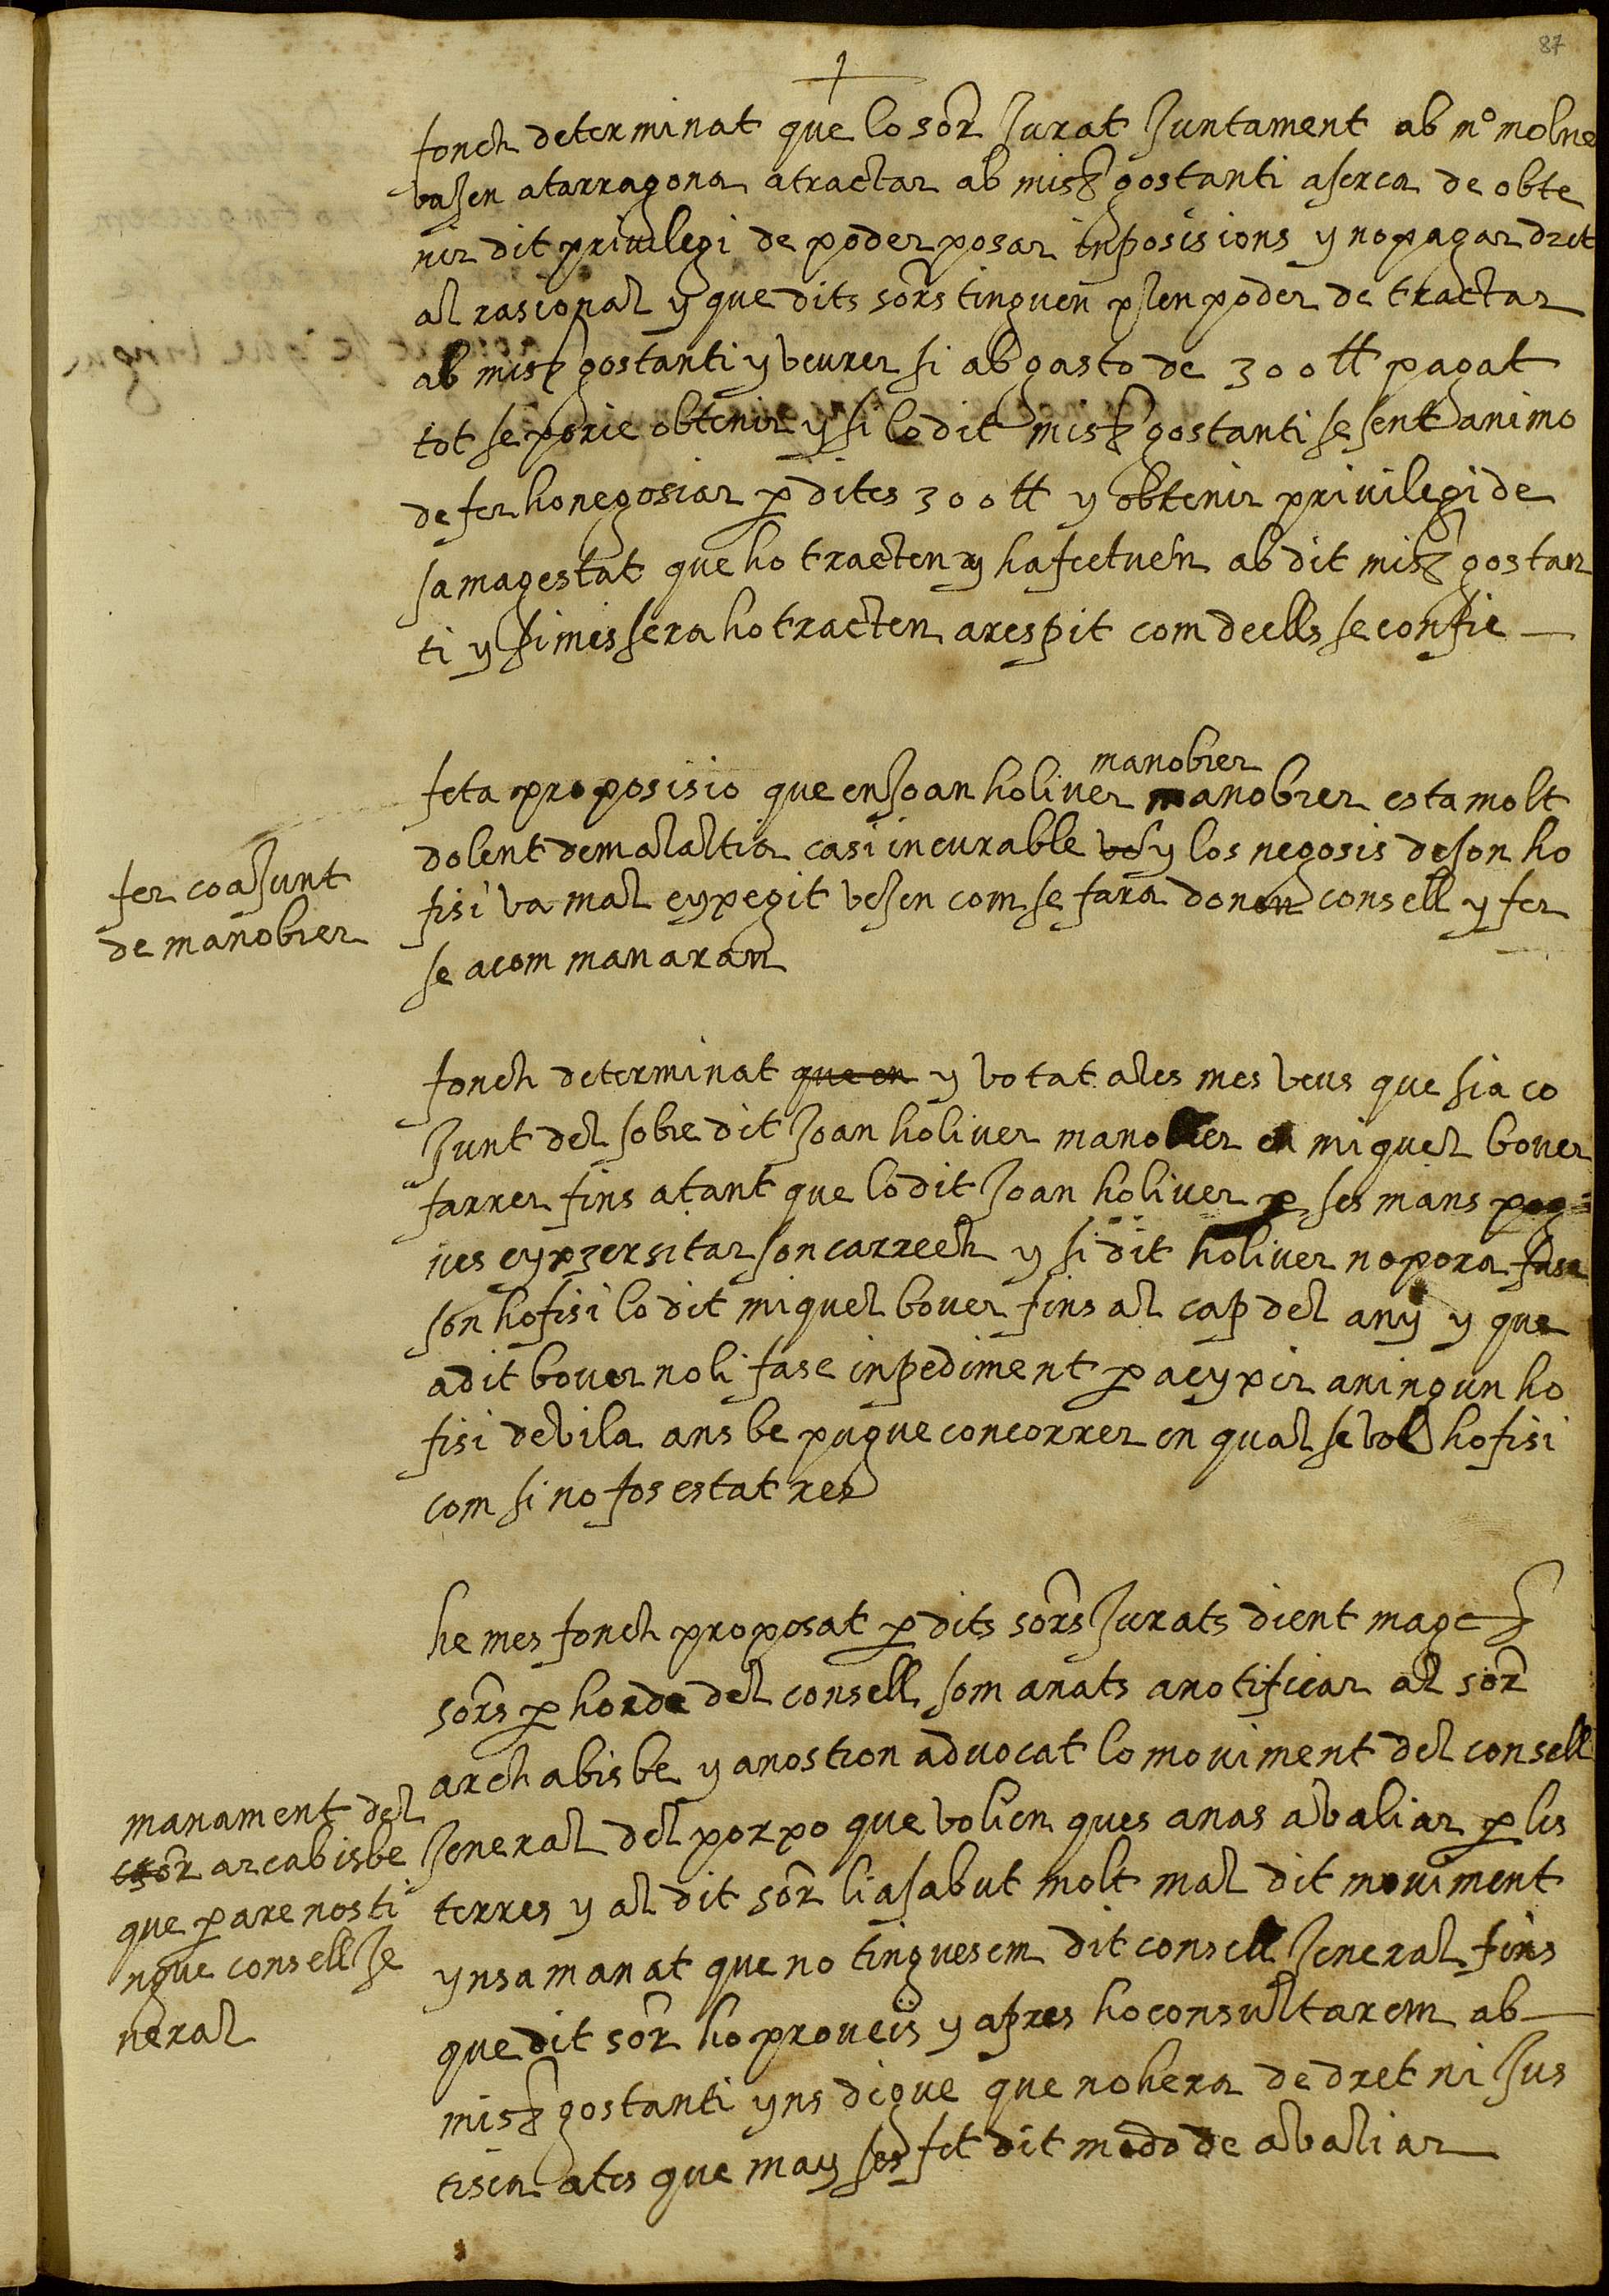 87
fonch determinat que lo sor Jurat Juntament ab mo molne
vasen a tarragona a tractar ab misz gostanti aserca de obte
nir dit privilegi de poder posar inposisions y no pagar dret
al rasional y que dits sors tinguen plen poder de tractar
ab misz gostanti y veurer si ab gasto de 300 ll pagat
tot se porie obtenir y si lo dit misz gostanti se sent animo
de fer ho negosiar p dites 300 ll y obtenir privilegi de
sa magestat que ho tracten y hafectuen ab dit misz gostan
ti y si mes sera ho tracten a respit com de ells se confie
manobrer
feta proposisio que en Joan holiver manobrer esta molt
dolent de malaltia casi incurable y los negosis de son ho
fisi va mal ey pegit vesen com se fara donen consell y fer
se a com manaran
fer coaJunt
de manobrer
fonch determinat que en y votat a les mes veus que sia co
Junt del sobredit Joan holiver manobrer en miquel bover
farrer fins a tant que lo dit Joan holiver p ses mans pog=
ues eyxersitar son carrech y si dit holiver no pora fasa
son hofisi lo dit miquel bover fins al cap del any y que
a dit bover no li fase inpediment p a eyxir a ningun ho
fisi de vila ans be pugue concorrer en qual se vol hofisi
com si no fos estat res
he mes fonch proposat p dits sors Jurats dient mag
sors p horde del consell som anats a notificar al sor
archabisbe y a nostron advocat lo moviment del consell
Jeneral del porpo que volien ques anas a valiar p les
terres y al dit sor li a sabut molt mal dit moviment
y nsa manat que no tinguesem dit consell Jeneral fins
que dit sor ho proveis y apres ho consultarem ab
misz gostanti y ns digue que no hera de dret ni Jus
tisia ates que may ses fet dit modo de avaliar
manament del
sor arcabisbe
que p are nos ti
ngue consell Je
neral